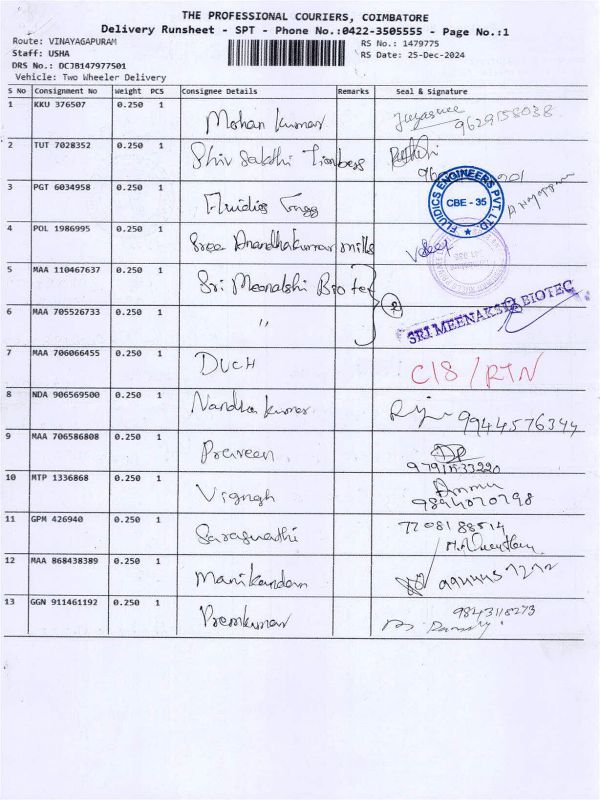 THE PROFESSIONAL COURIERS, COIMBATORE
Delivery Runsheet - SPT - Phone No.:0422-3505555 - Page No.:1
Route: VINAYAGAPURAM
RS No.: 1479775
Staff: USHA
RS Date: 25-Dec-2024
DRS No.: DCJB147977501
Vehicle: Two Wheeler Delivery
S No Consignment No Weight PCS Consignee Details Remarks Seal & Signature
1 KKU 376507 0.250 1 Mohan Kumar
9629158038
2 TUT 7028352 0.250 1 Shiv Sakthi
3 PGT 6034958 0.250 1 Fluidics Engg
FLUIDICS ENGINEERS PVT. LTD.
CBE - 35
4 POL 1986995 0.250 1 Sree Anandhakumar mills
5 MAA 110467637 0.250 1 Sri Meenakshi Bio Tec
2
6 MAA 705526733 0.250 1 "
SRI MEENAKSHI BIOTEC
7 MAA 706066455 0.250 1 DUCH C/S / RTN
8 NDA 906569500 0.250 1 Nandha Kumar 9944576344
9 MAA 706586808 0.250 1 Praveen
10 MTP 1336868 0.250 1 Vigngh Ammu
9894070798
11 GPM 426940 0.250 1 Saraswathi 7708188514
12 MAA 868438389 0.250 1 Manikandan
13 GGN 911461192 0.250 1 Premkumar 9843118273